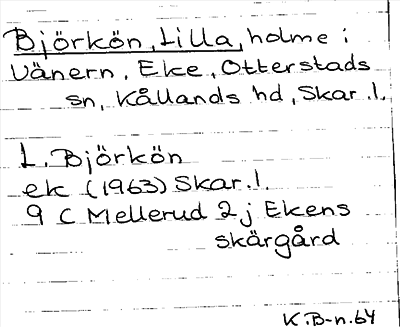 Björkön, Lilla, holme i
Vänern, Eke, Otterstads
sn, Kållands hd, Skar.l.
L. Björkön
ek (1963) Skar.l.
9 C Mellerud 2 j Ekens
skärgård
K.B-n.64